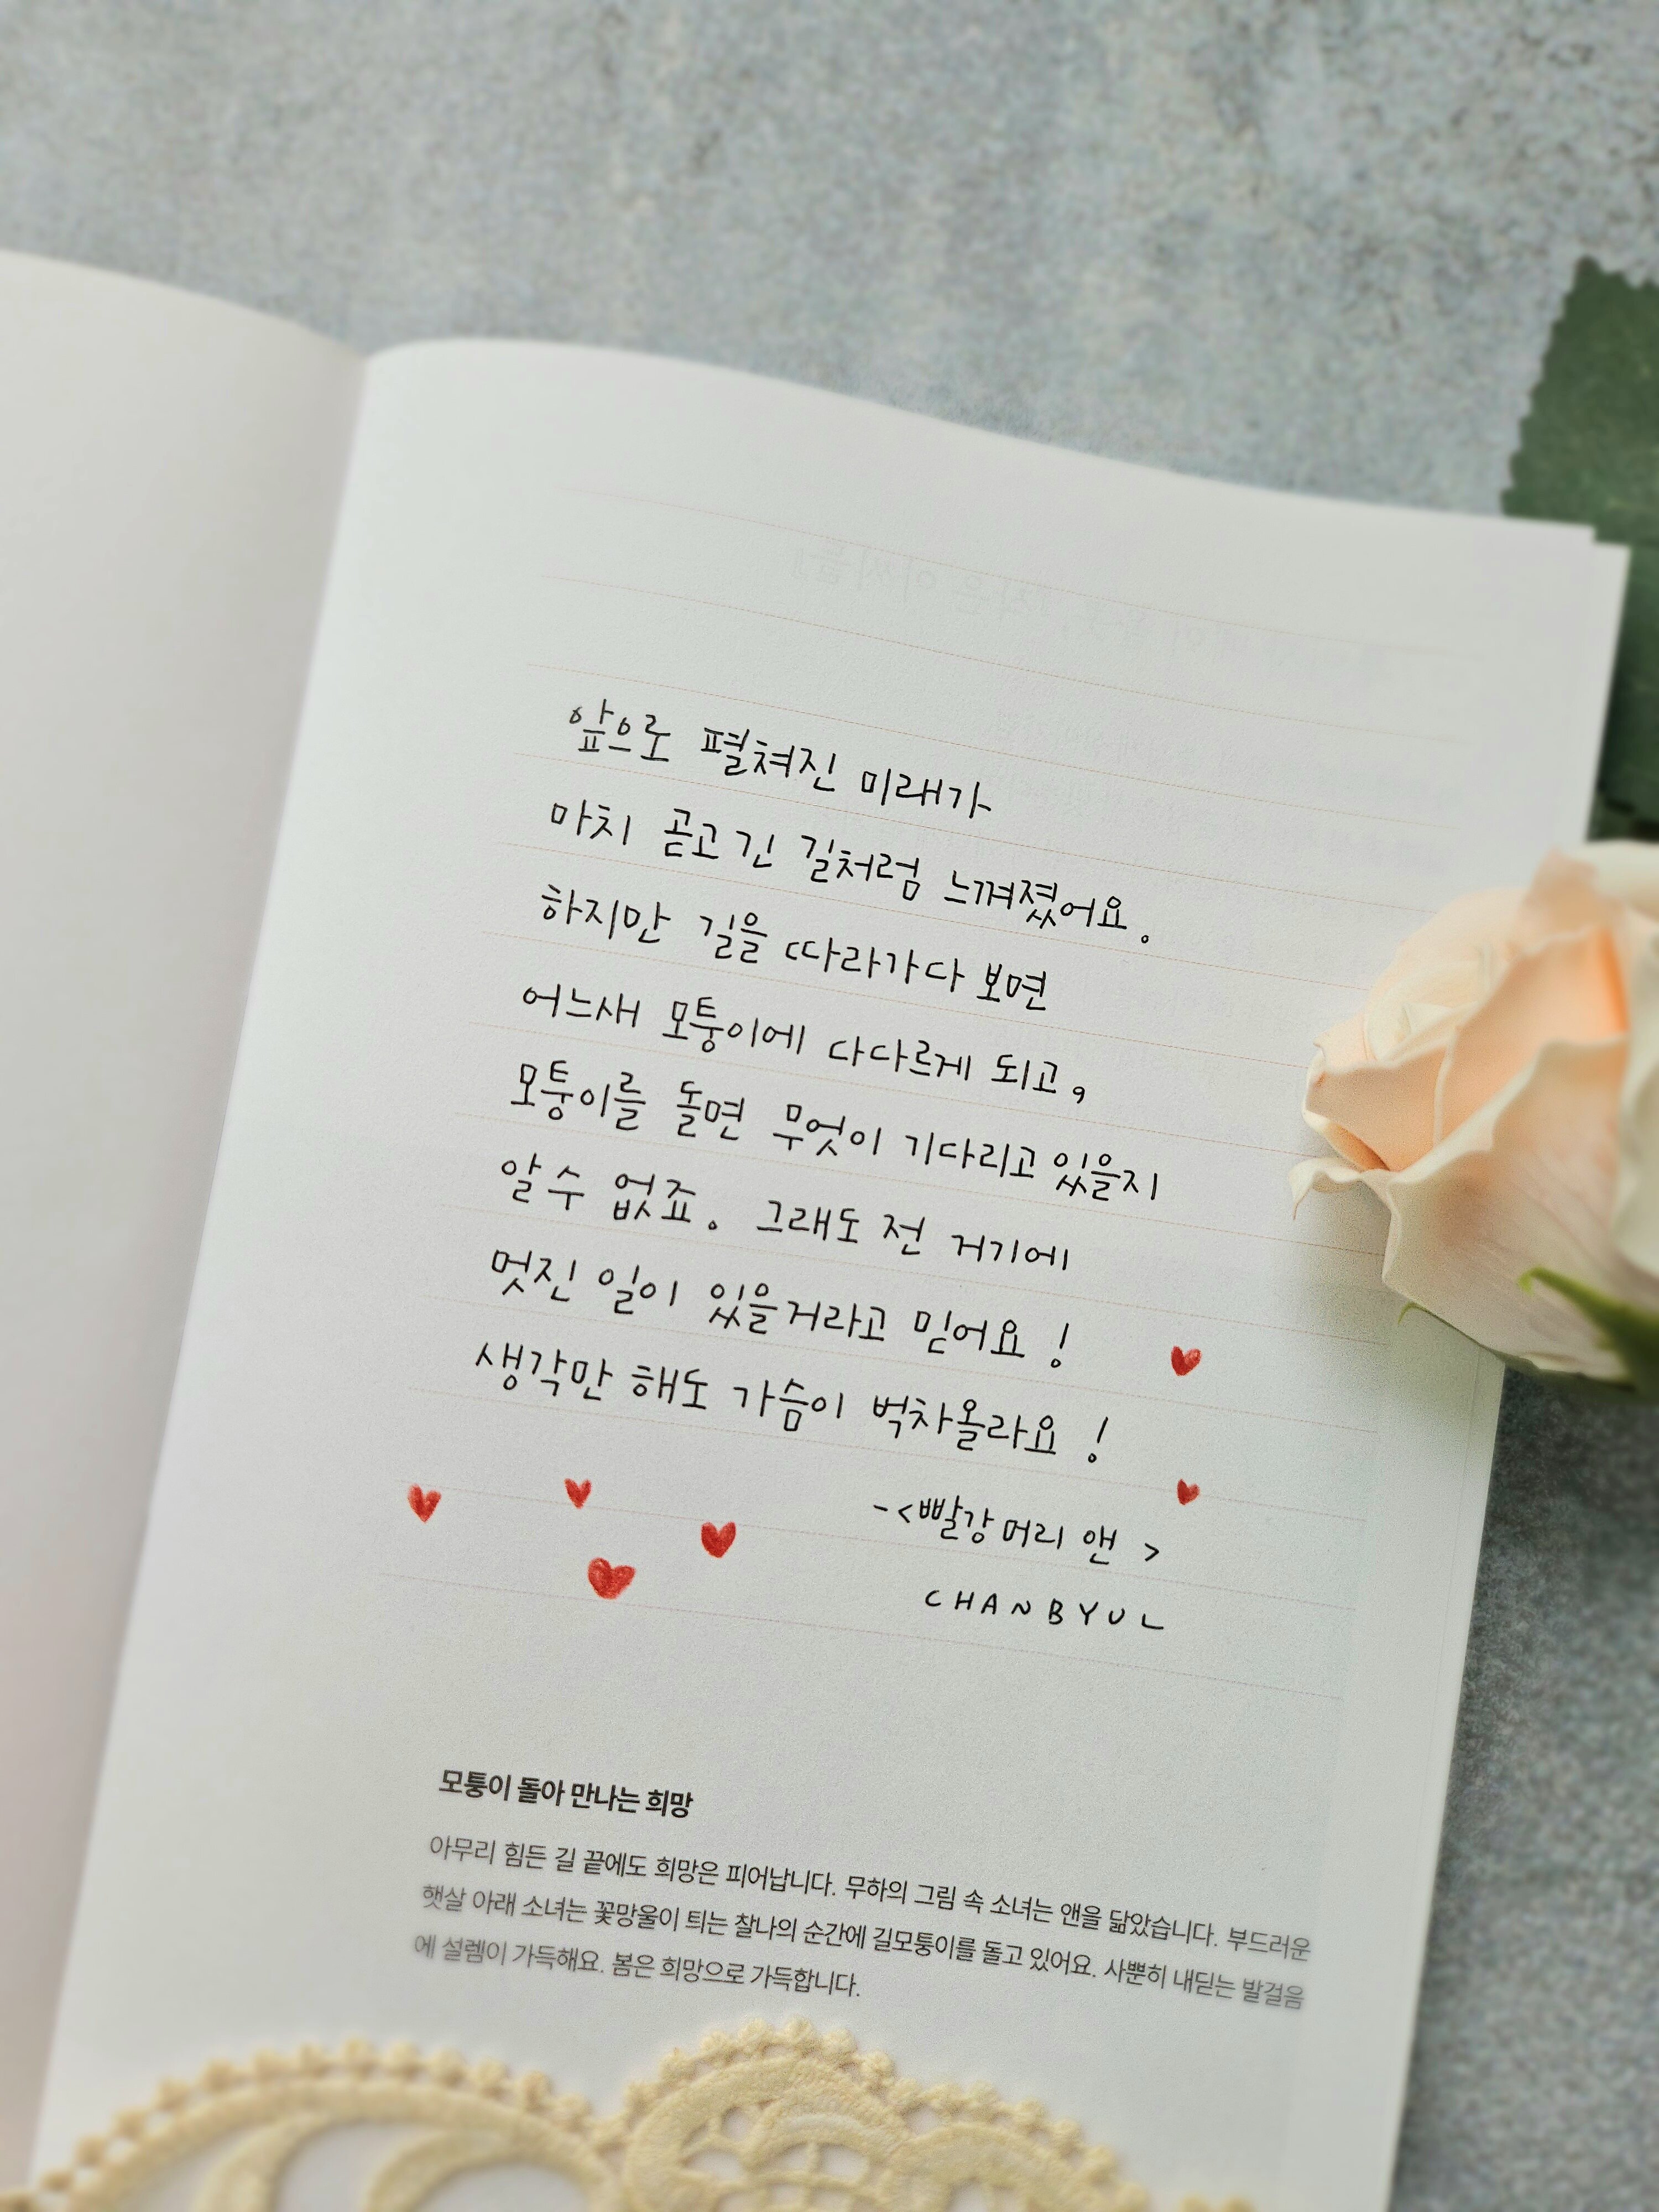 앞으로 펼쳐진 미래가
마치 곧고 긴 길처럼 느껴졌어요.
하지만 길을 따라가다 보면
어느새 모퉁이에 다다르게 되고,
모퉁이를 돌면 무엇이 기다리고 있을지
알 수 없죠. 그래도 전 거기에
멋진 일이 있을거라고 믿어요!
생각만 해도 가슴이 벅차올라요!
-<빨강 머리 앤>
CHANBYUL
모퉁이 돌아 만나는 희망
아무리 힘든 길 끝에도 희망은 피어납니다. 무하의 그림 속 소녀는 앤을 닮았습니다. 부드러운
햇살 아래 소녀는 꽃망울이 틔는 찰나의 순간에 길모퉁이를 돌고 있어요. 사뿐히 내딛는 발걸음
에 설렘이 가득해요. 봄은 희망으로 가득합니다.